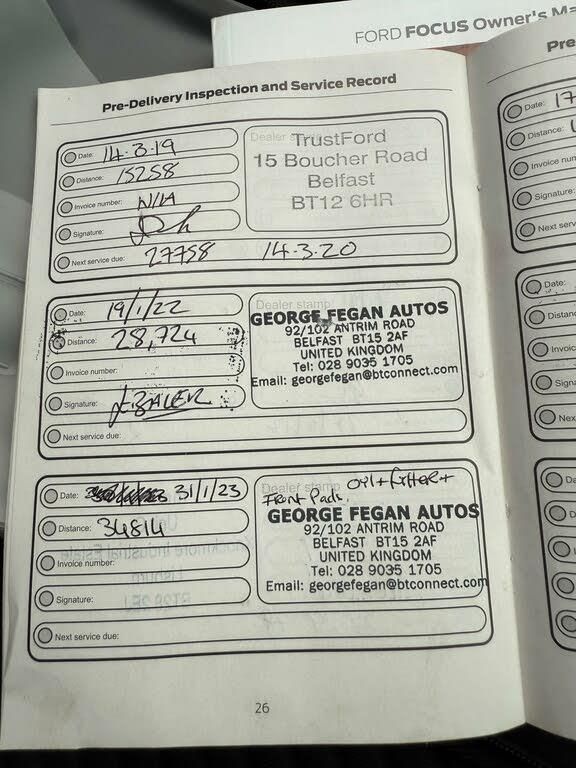 FORD FOCUS Owner's Ma
Pre-Delivery Inspection and Service Record
Date: 14.3.19
Distance: 15258
Invoice number: N/A
Signature:
Next service due: 27758 14.3.20
Dealer stamp
TrustFord
15 Boucher Road
Belfast
BT12 6HR
Date: 19/1/22
Distance: 28,724
Invoice number:
Signature:
Next service due:
Dealer stamp
GEORGE FEGAN AUTOS
92/102 ANTRIM ROAD
BELFAST BT15 2AF
UNITED KINGDOM
Tel: 028 9035 1705
Email: georgefegan@btconnect.com
Date: 31/1/23
Distance: 34814
Invoice number:
Signature:
Next service due:
Dealer stamp
Oyl + fylter +
Front Pads.
GEORGE FEGAN AUTOS
92/102 ANTRIM ROAD
BELFAST BT15 2AF
UNITED KINGDOM
Tel: 028 9035 1705
Email: georgefegan@btconnect.com
26
Pre
Date: 17
Distance:
Invoice num
Signature:
Next serv
Date:
Distanc
Invoic
Signa
Next
Da
Di